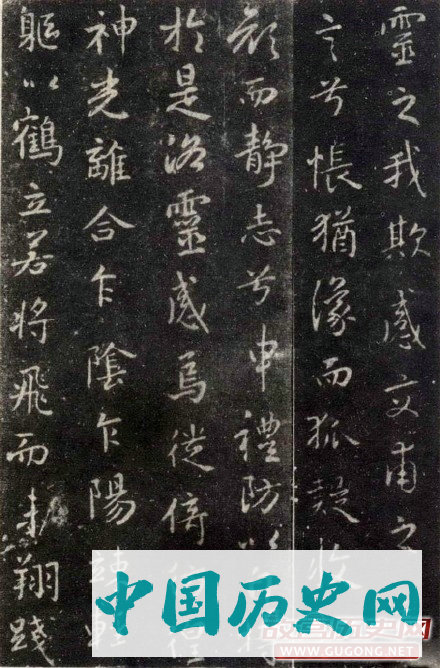 靈之我欺感交甫之
言兮悵猶豫而狐疑收
顔而静志兮申禮防以
於是洛靈感焉徙倚
神光離合乍陰乍陽竦輕
軀以鶴立若將飛而未翔踐
中国历史网
WWW.GUGONG.NET